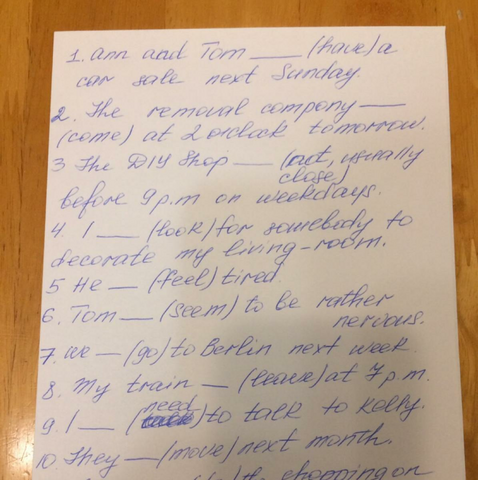 1. Ann and Tom ___ (have) a
car sale next Sunday.
2. The removal company ___
(come) at 2 o'clock tomorrow.
3 The DIY Shop ___ (not, usually
close)
before 9 p.m on weekdays.
4. I ___ (look) for somebody to
decorate my living-room.
5 He ___ (feel) tired.
6. Tom ___ (seem) to be rather
nervous.
7. We ___ (go) to Berlin next week
8. My train ___ (leave) at 7 p m.
9. I ___ (need) to talk to Kelly.
10. They ___ (move) next month.
the shopping on